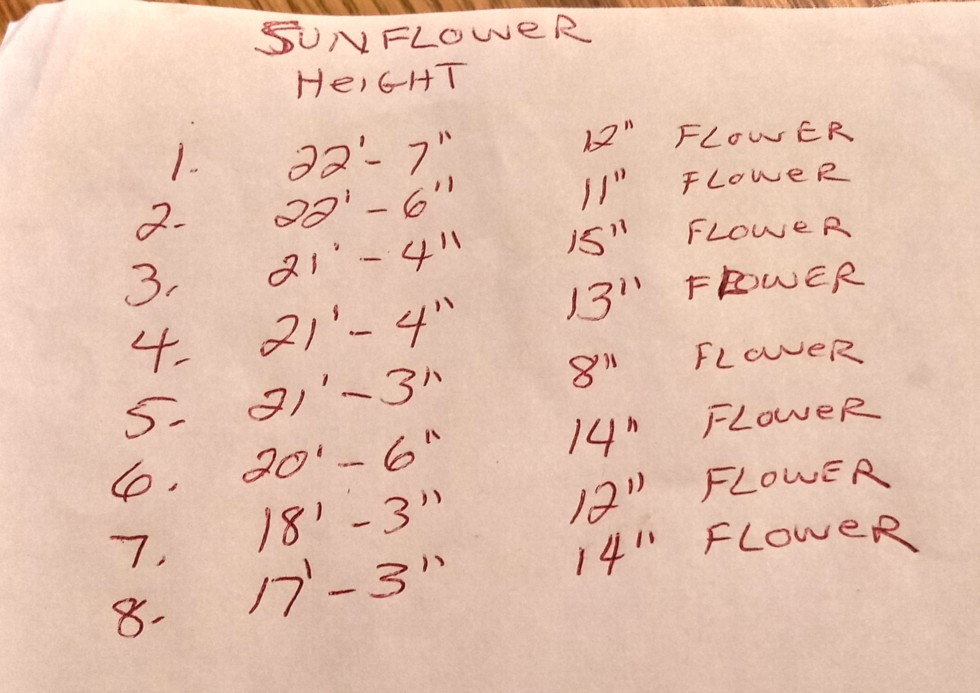 SUNFLOWER
HEIGHT
1. 22'-7" 12" FLOWER
2- 22'-6" 11" FLOWER
3. 21'-4" 15" FLOWER
4- 21'-4" 13" FLOWER
5- 21'-3" 8" FLOWER
6. 20'-6" 14" FLOWER
7. 18'-3" 12" FLOWER
8- 17'-3" 14" FLOWER